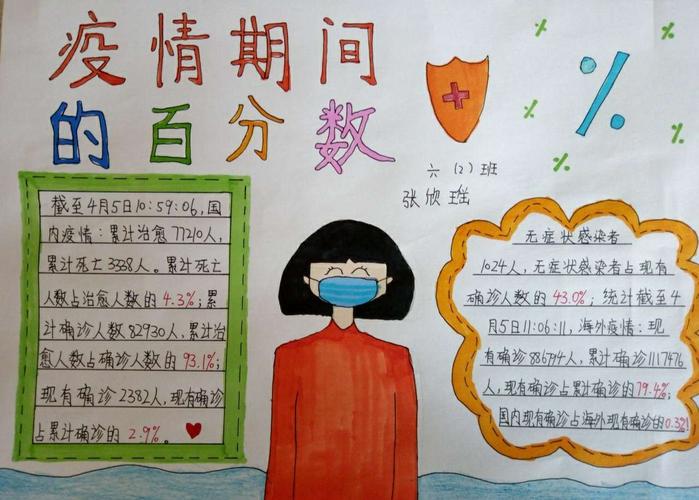 疫情期间
的百分数
六（2）班
张欣
截至4月5日10:59:06,国
内疫情：累计治愈77210人,
累计死亡3338人。累计死亡
人数占治愈人数的4.3%；累
计确诊人数82930人,累计治
愈人数占确诊人数的93.1%；
现有确诊2382人,现有确诊
占累计确诊的2.9%。
%
无症状感染者
1024人，无症状感染者占现有
确诊人数的43.0%；统计截至4
月5日11:06:11,海外疫情：现
有确诊886914人,累计确诊1117476
人,现有确诊占累计确诊的79.4%；
国内现有确诊占海外现有确诊的0.3%